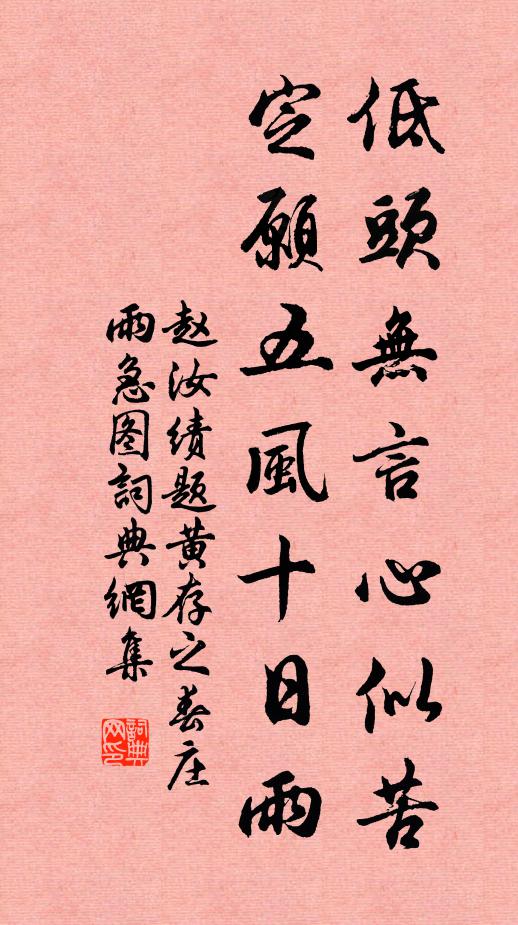 低頭無言心似苦
定願五風十日雨
赵汝绩题黄存之春庄
雨急图詞典網集
詞典网印